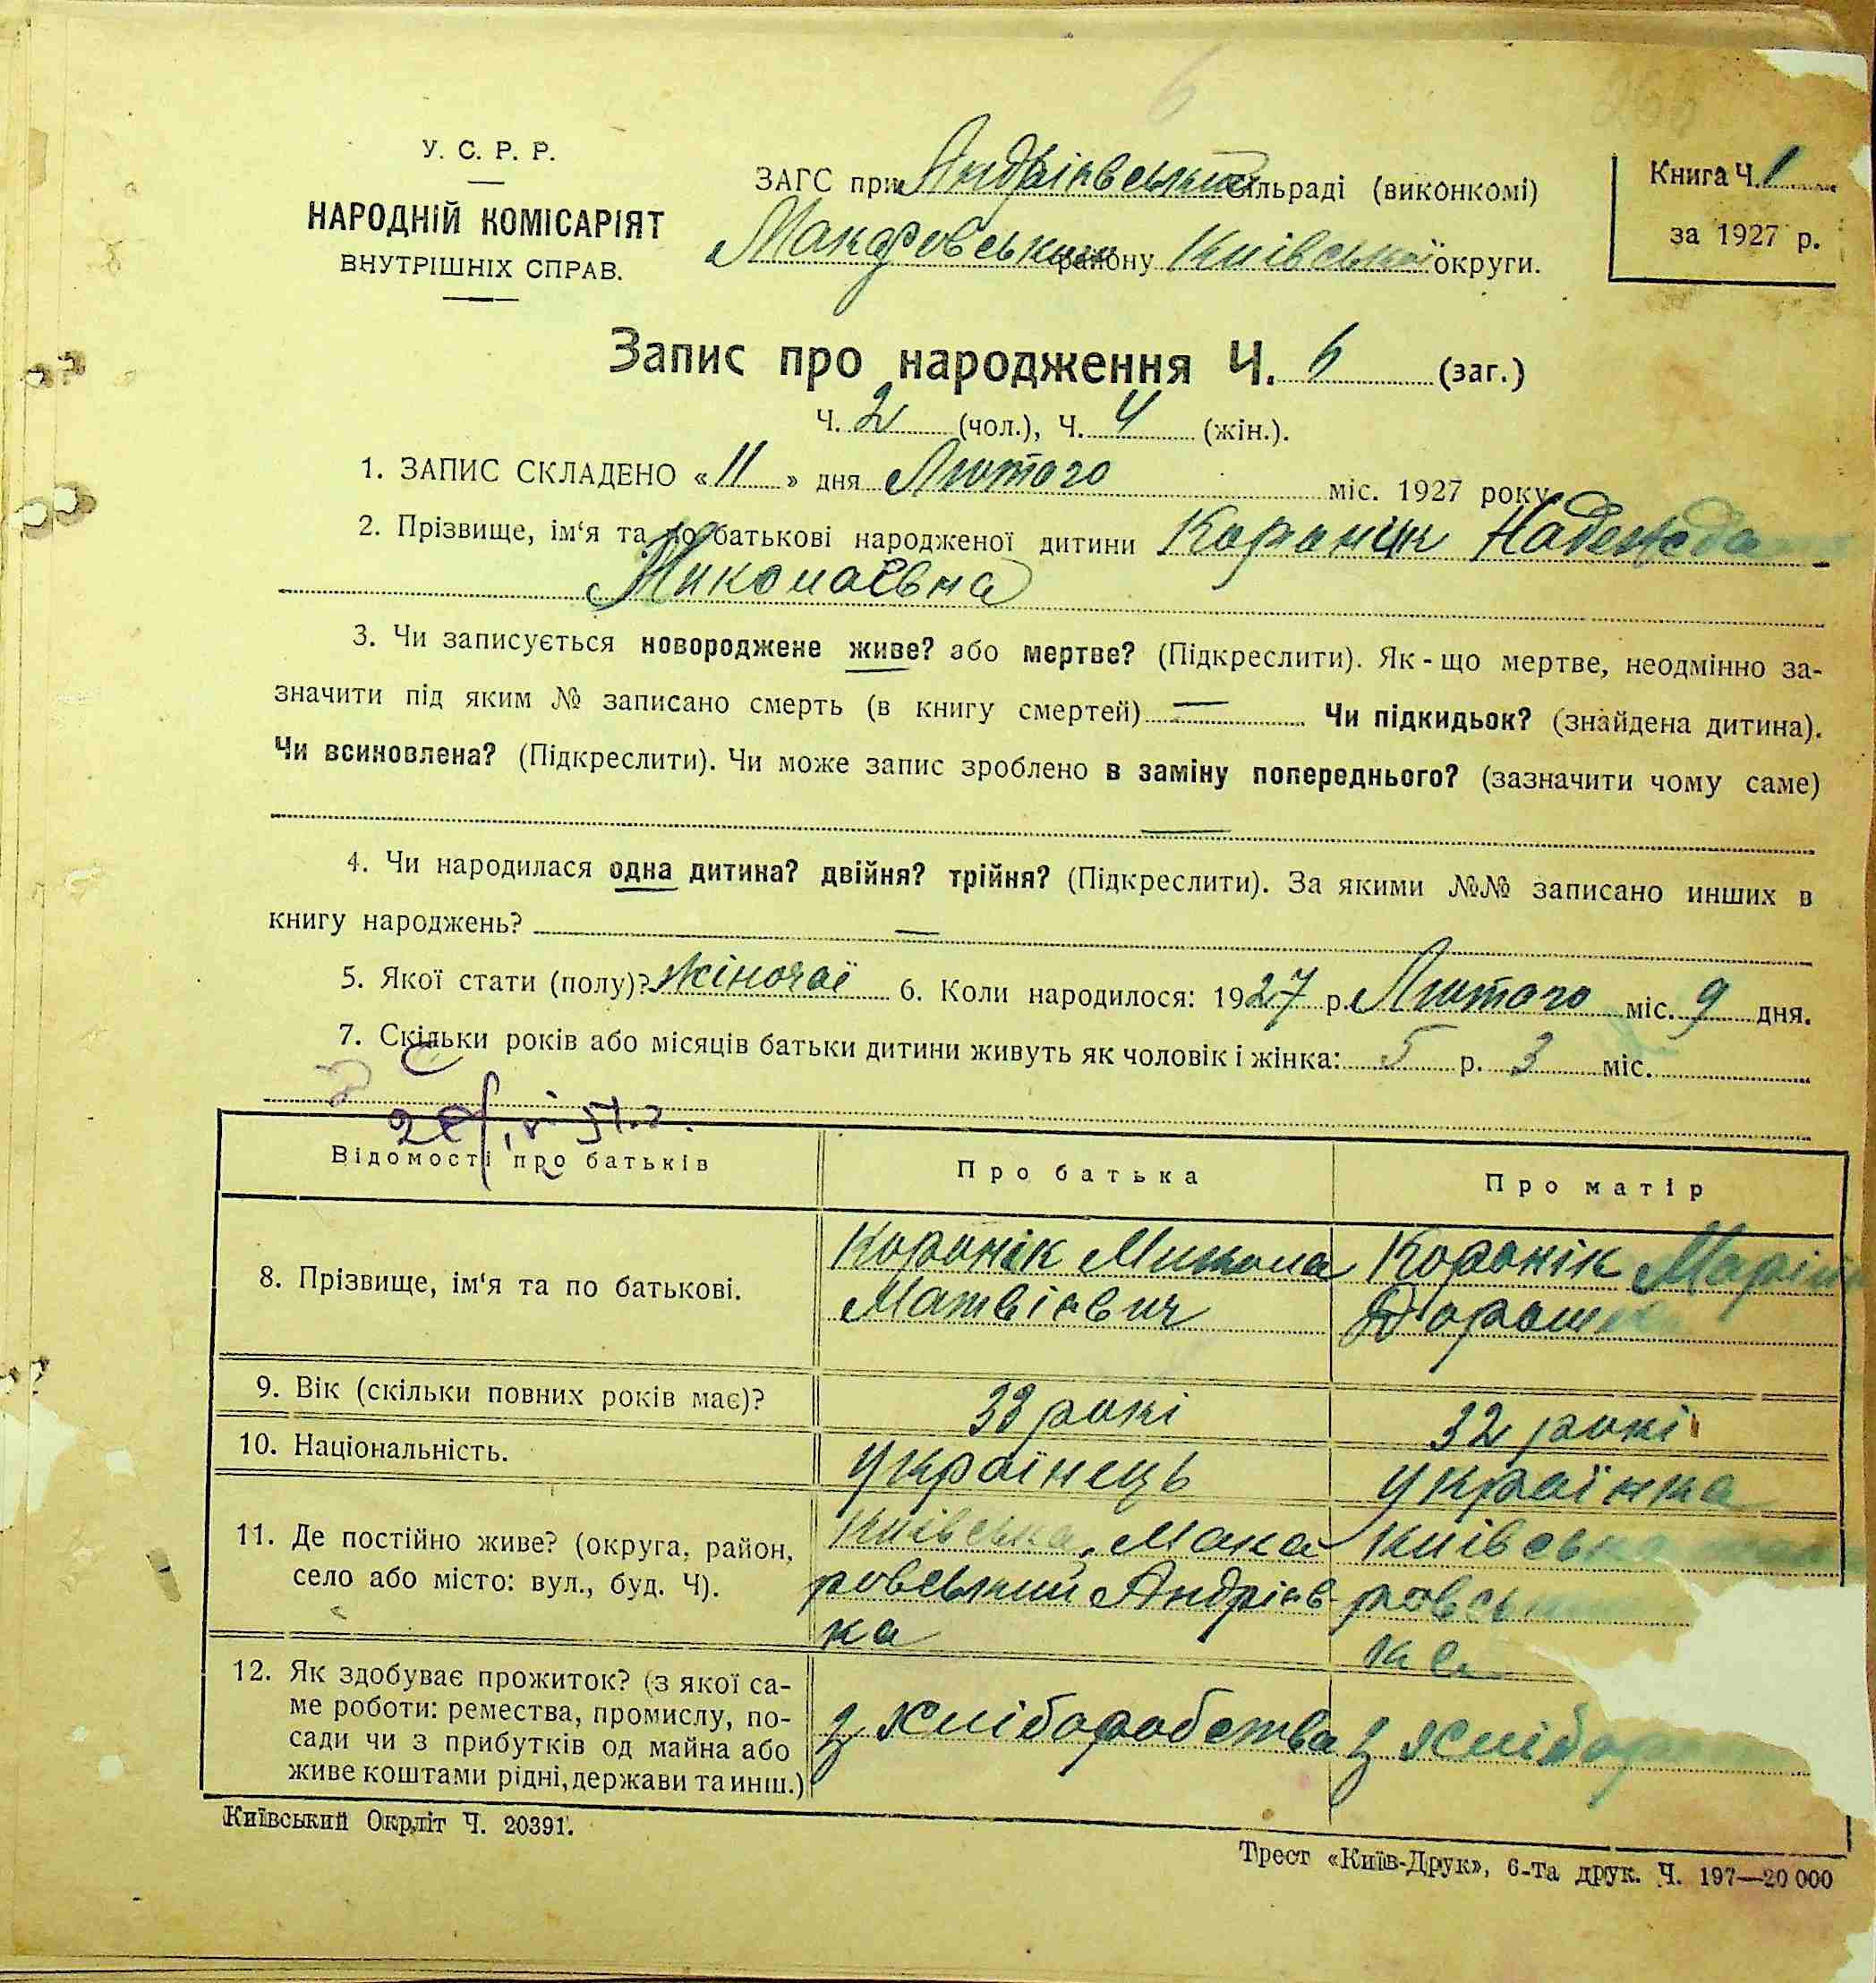 У. С. Р. Р.
НАРОДНІЙ КОМІСАРІЯТ
ВНУТРІШНІХ СПРАВ.
ЗАГС при Андріівський сільраді (виконкомі)
Макаровський району Київської округи.
Книга Ч. 1
за 1927 р.
Запис про народження Ч. 6 (заг.)
Ч. 2 (чол.), Ч. 4 (жін.).
1. ЗАПИС СКЛАДЕНО «11» дня Лютого міс. 1927 року
2. Прізвище, ім‘я та по батькові народженої дитини Коронік Надежда
Миколаєвна
3. Чи записується новороджене живе? або мертве? (Підкреслити). Як-що мертве, неодмінно за-
значити під яким № записано смерть (в книгу смертей) — Чи підкидьок? (знайдена дитина).
Чи всиновлена? (Підкреслити). Чи може запис зроблено в заміну попереднього? (зазначити чому саме)
—
4. Чи народилася одна дитина? двійня? трійня? (Підкреслити). За якими №№ записано инших в
книгу народжень? —
5. Якої стати (полу)? жіночої 6. Коли народилося: 1927 р. Лютого міс. 9 дня.
7. Скільки років або місяців батьки дитини живуть як чоловік і жінка: 5 р. 3 міс.
Відомості про батьків Про батька Про матір
8. Прізвище, ім‘я та по батькові. Коронік Микола Коронік Марія
Матвієвич
9. Вік (скільки повних років має)? 33 рокі 32 рокі
10. Національність. Українець Українка
11. Де постійно живе? (округа, район, село або місто: вул., буд. Ч). Київська, Мака Київська
ровський Андрієв- ровськ
ка ка
12. Як здобуває прожиток? (з якої са-
ме роботи: ремества, промислу, по-
сади чи з прибутків од майна або
живе коштами рідні, держави та инш.)
з хліборобства з хлібор
Київський Окрліт Ч. 20391.
Трест «Київ-Друк», 6-та друк. Ч. 197—20 000